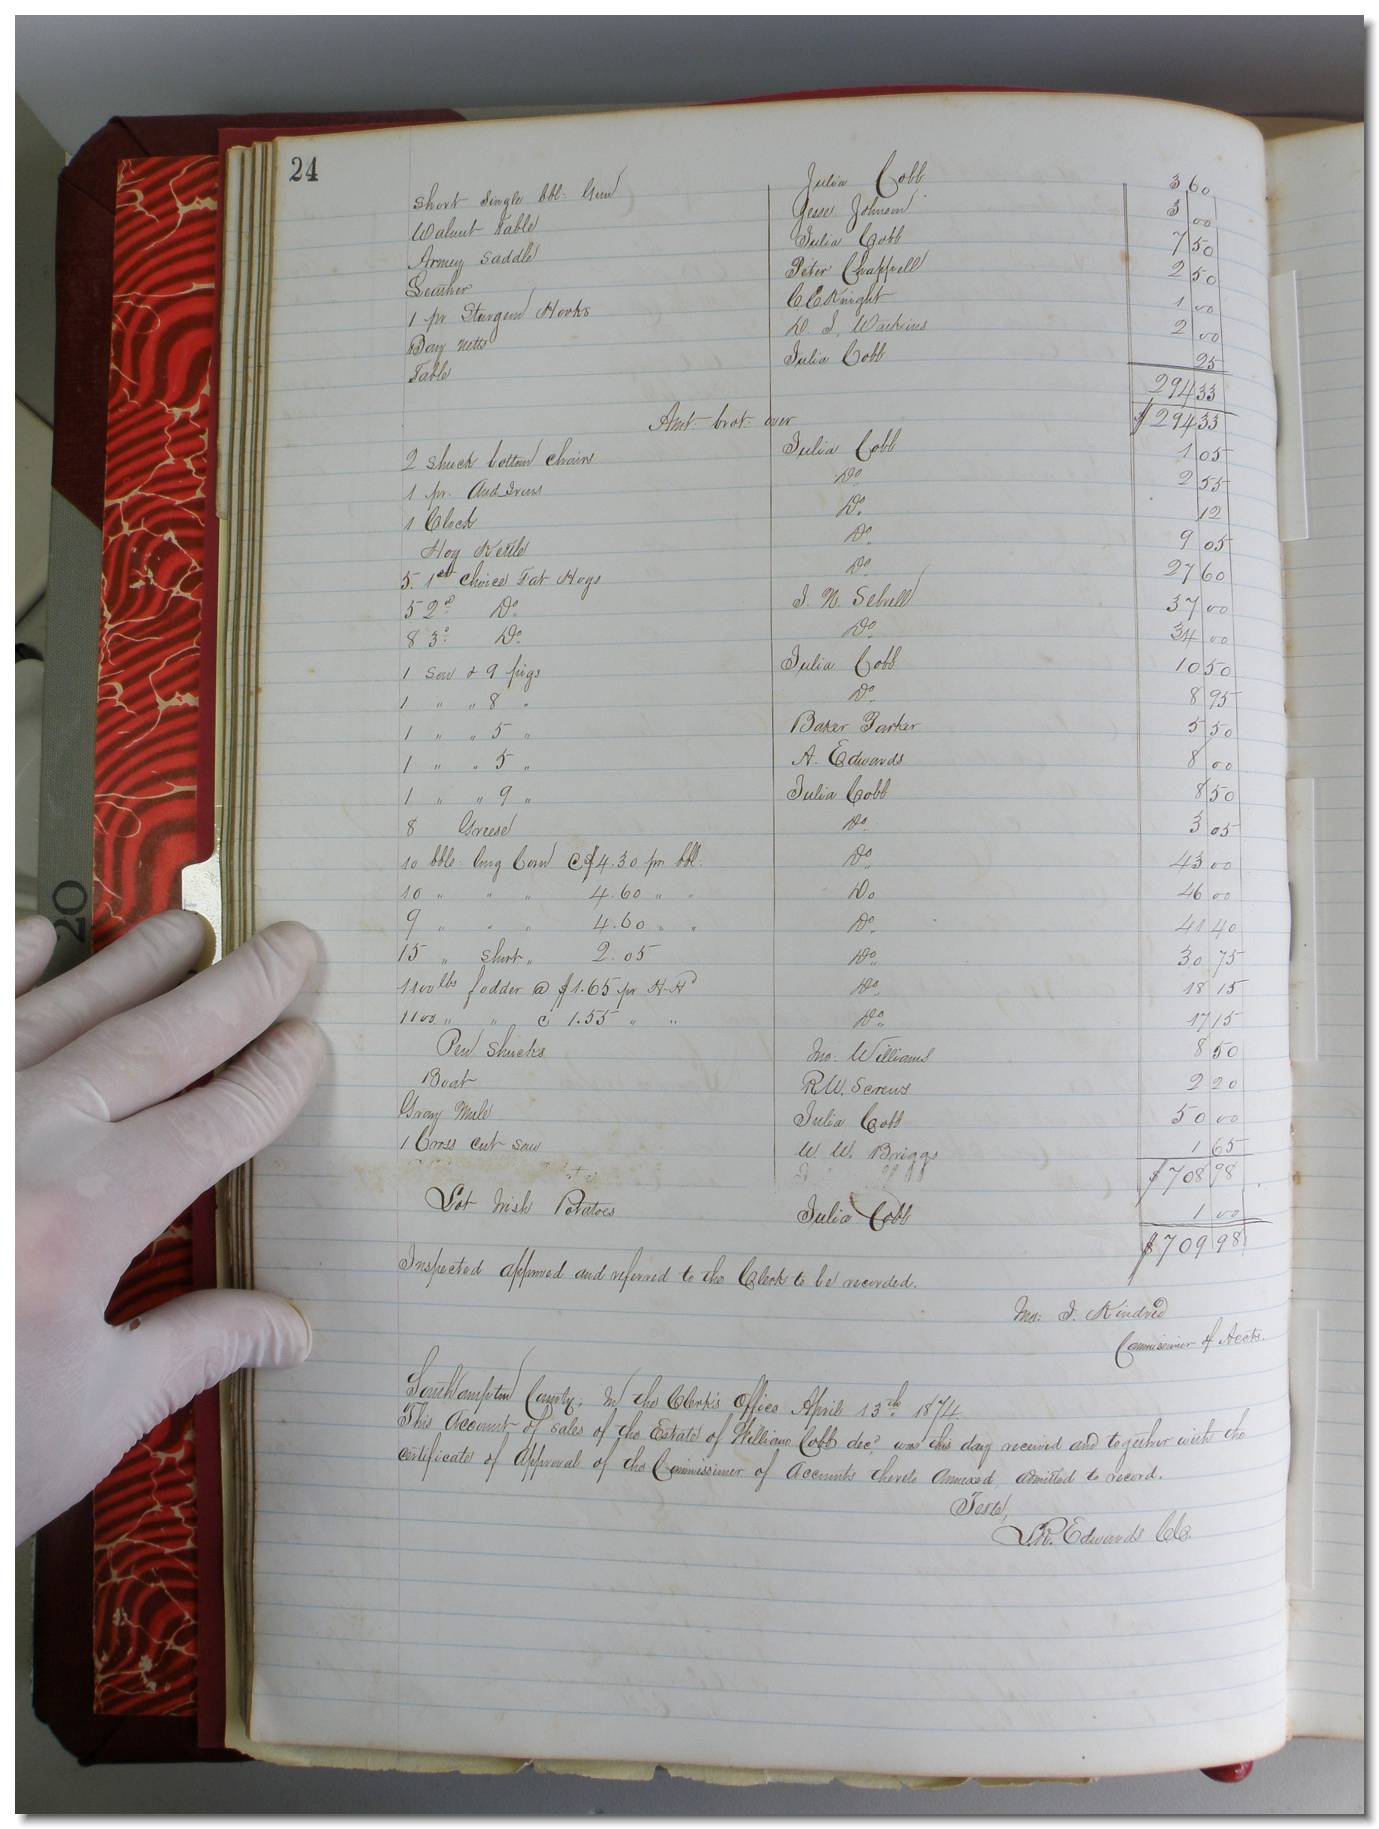 24
Short Single bbl. Gun Julia Cobb 3 60
Walnut Table Jesse Johnson 3 00
Armey Saddle Julia Cobb 7 50
Leather Peter Chappell 2 50
1 pr Hooks C. C. Knight 1 00
netts D. J. Watkins 2 00
Table Julia Cobb 25
294 33
Amt. brot. over $294 33
2 Shuck bottom chairs Julia Cobb 1 05
1 pr. And Irons Do 2 55
1 Clock Do. 12
Hog Kettle Do. 9 05
5. 1st Choice Fat Hogs Do 27 60
5 2d Do. J. N. Sebrell 37 00
8 3d Do. Do. 34 00
1 Sow & 9 pigs Julia Cobb 10 50
1 " " 8 " Do. 8 95
1 " " 5 " Baker Parker 5 50
1 " " 5 " A. Edwards 8 00
1 " " 9 " Julia Cobb 8 50
8 Greese Do. 3 05
10 bbls long Corn @ $4.30 pr bbl. Do. 43 00
10 " " " 4.60 " " Do 46 00
9 " " " 4.60 " " Do. 41 40
15 " Short " 2.05 Do. 30 75
1100 lbs fodder @ $1.65 pr H.H.d Do. 18 15
1100 " " @ 1.55 " " Do. 17 15
Pen Shucks Jno. Williams 8 50
Boat R. W. Screws 2 20
Gray Mule Julia Cobb 50 00
1 Cross cut saw W. W. Briggs 1 65
$708 98
Lot Irish Potatoes Julia Cobb 1 00
$709 98
Inspected approved and referred to the Clerk to be recorded.
Jno: J. Kindred
Commissioner of Accts.
Southampton County; In the Clerk's Office April 13th 1874
This Account of sales of the Estate of William Cobb decd. was this day received and together with the
certificate of Approval of the Commissioner of Accounts thereto annexed, admitted to record.
Teste,
L. R. Edwards CC
20